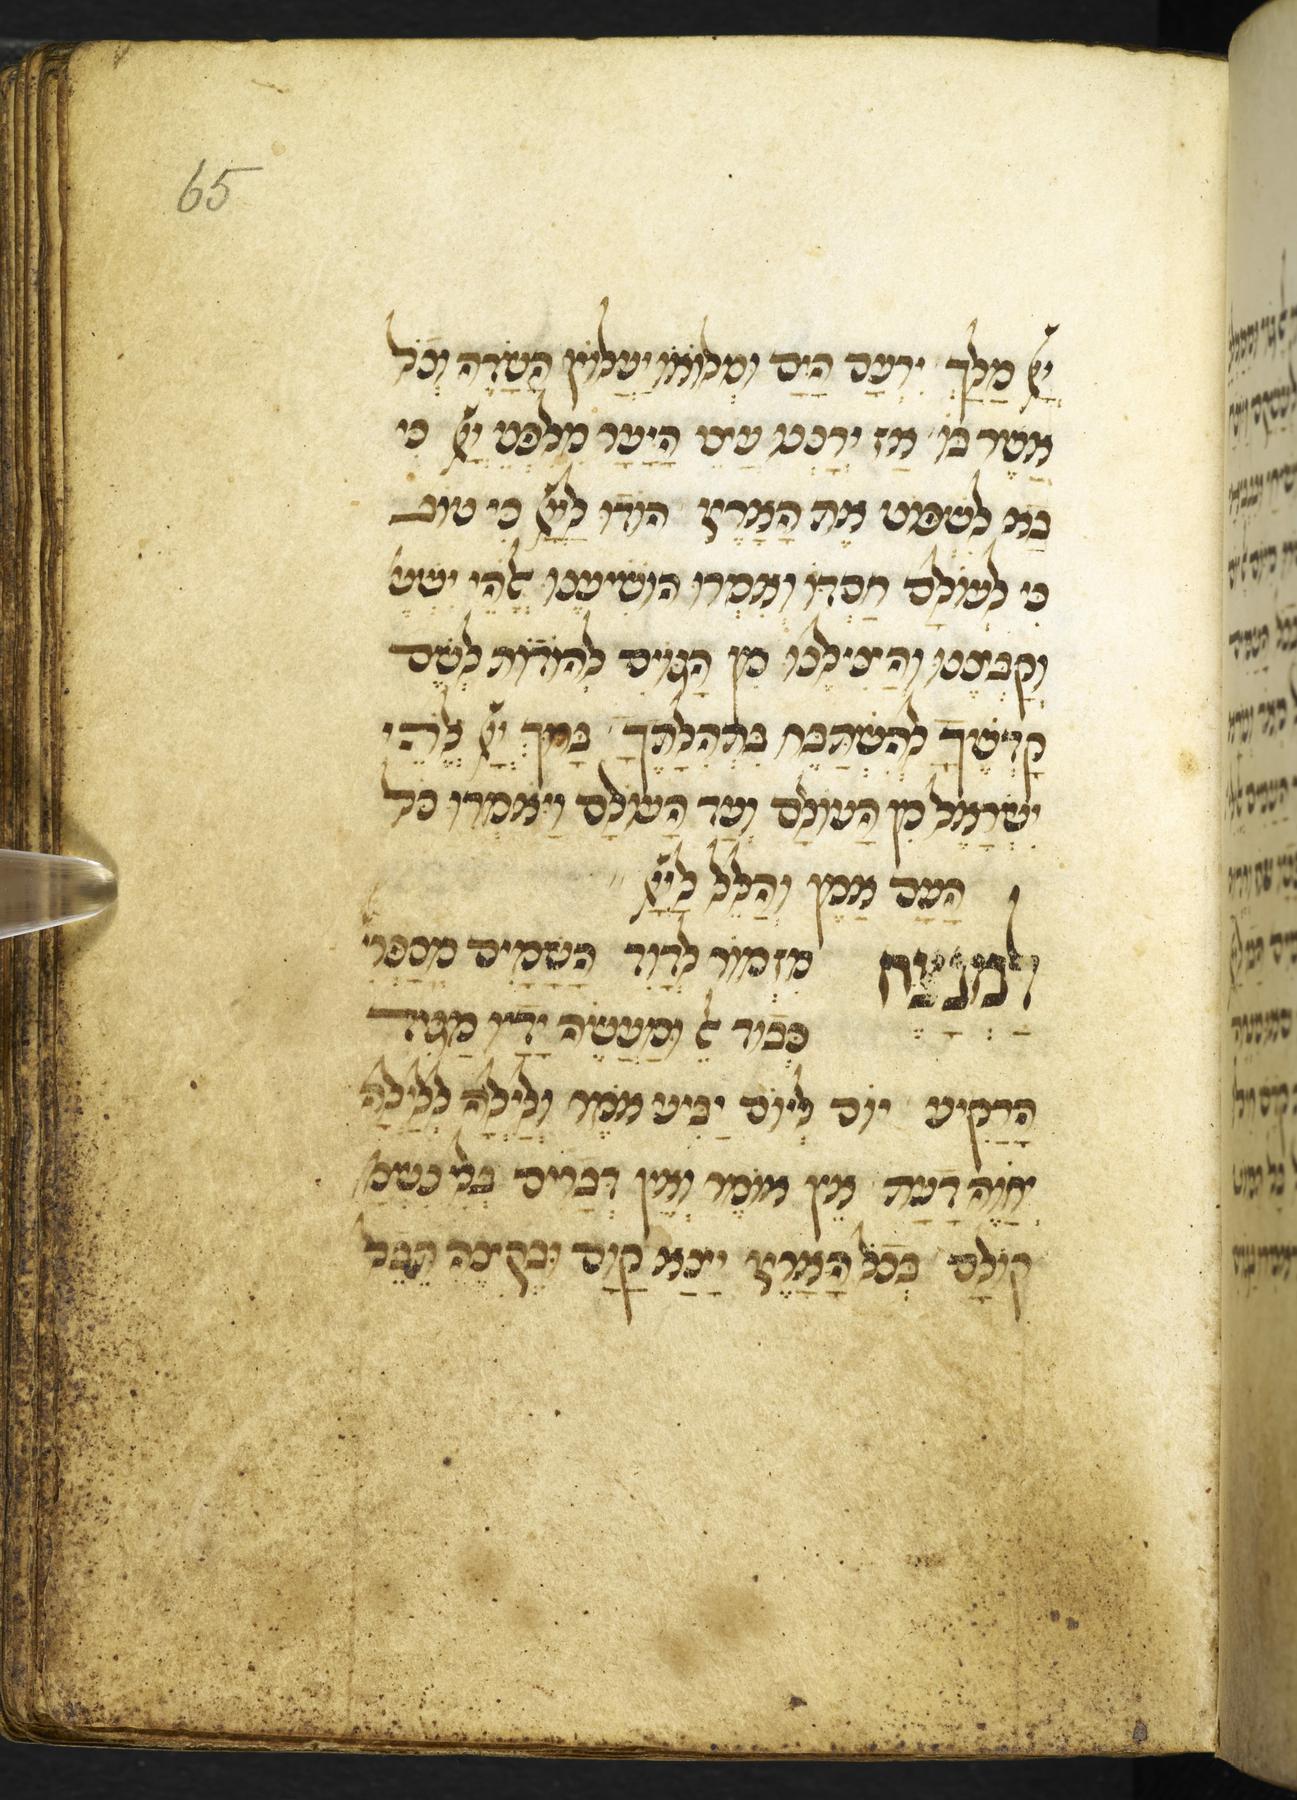 65
יְיָ מָלָךְ יִרְעַם הַיָּם וּמְלוֹאוֹ יַעֲלוֹץ הַשָּׂדֶה וְכָל
אֲשֶׁר בּוֹ אָז יְרַנְּנוּ עֲצֵי הַיָּעַר מִלִּפְנֵי יְיָ כִּי
בָא לִשְׁפּוֹט אֶת הָאָרֶץ הוֹדוּ לַייָ כִּי טוֹב
כִּי לְעוֹלָם חַסְדּוֹ וְאִמְרוּ הוֹשִׁיעֵנוּ אֱלֹהֵי יִשְׁעֵנוּ
וְקַבְּצֵנוּ וְהַצִּילֵנוּ מִן הַגּוֹיִם לְהוֹדוֹת לְשֵׁם
קָדְשֶׁךָ לְהִשְׁתַּבֵּחַ בִּתְהִלָּתֶךָ בָּרוּךְ יְיָ אֱלֹהֵי
יִשְׂרָאֵל מִן הָעוֹלָם וְעַד הָעוֹלָם וַיֹּאמְרוּ כָל
הָעָם אָמֵן וְהַלֵּל לַייָ
לַמְנַצֵּחַ מִזְמוֹר לְדָוִד הַשָּׁמַיִם מְסַפְּרִים
כְּבוֹד אֵל וּמַעֲשֵׂה יָדָיו מַגִּיד
הָרָקִיעַ יוֹם לְיוֹם יַבִּיעַ אֹמֶר וְלַיְלָה לְּלַיְלָה
יְחַוֶּה דָּעַת אֵין אוֹמֶר וְאֵין דְּבָרִים בְּלִי נִשְׁמָע
קוֹלָם בְּכָל הָאָרֶץ יָצָא קַוָּם וּבִקְצֵה תֵבֵל